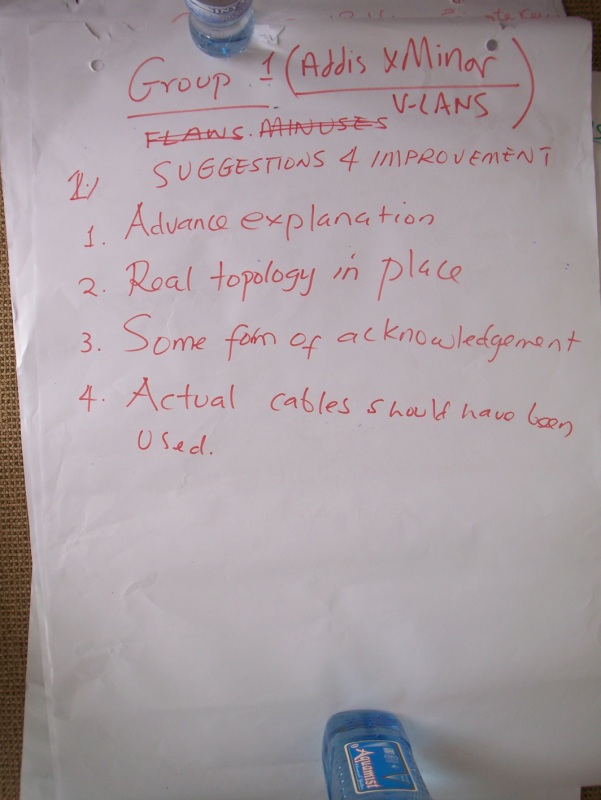 Group 1 (Addis x Minar)
V-LANS
FLAWS. MINUSES
1) SUGGESTIONS 4 IMPROVEMENT
1. Advance explanation
2. Real topology in place
3. Some form of acknowledgement
4. Actual cables should have been
used.
Aquamist